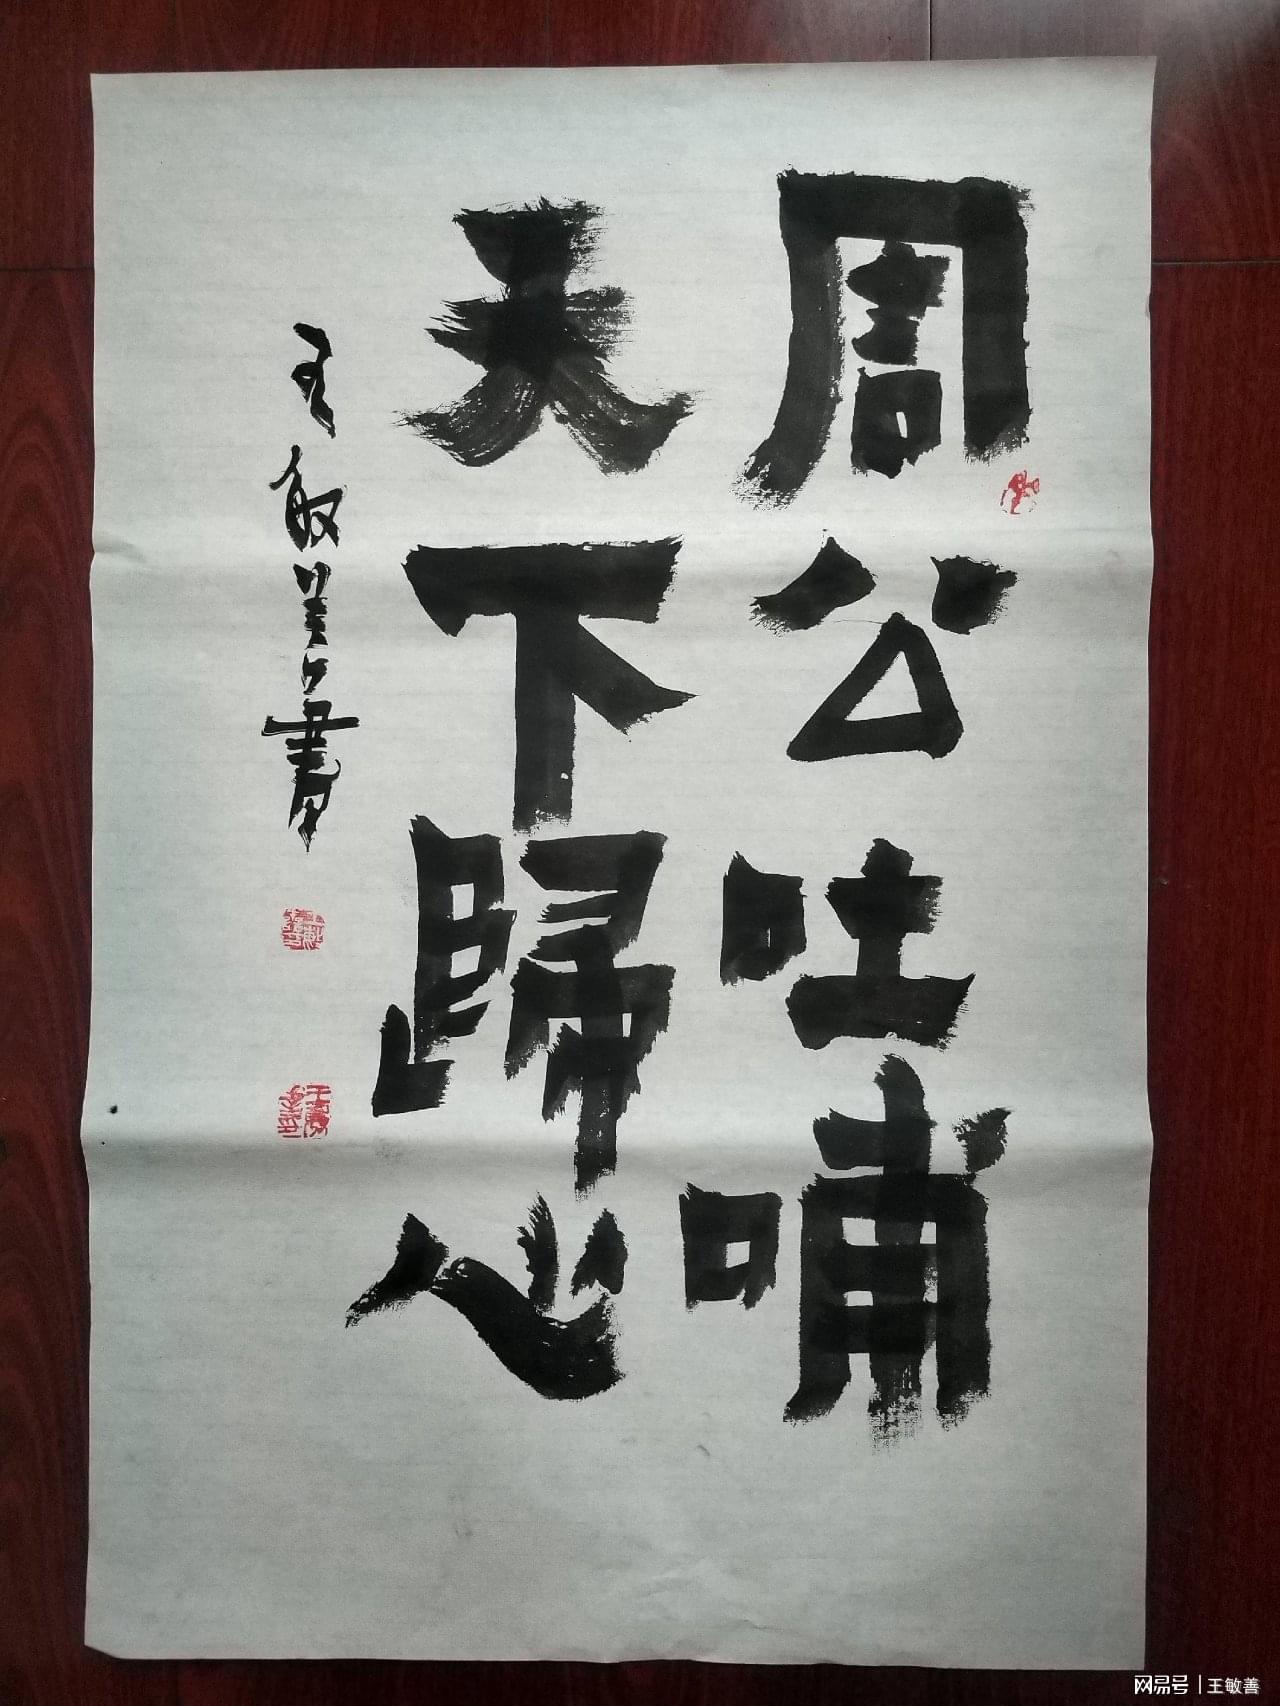 周公吐哺
天下歸心
王敏善書
网易号 | 王敏善